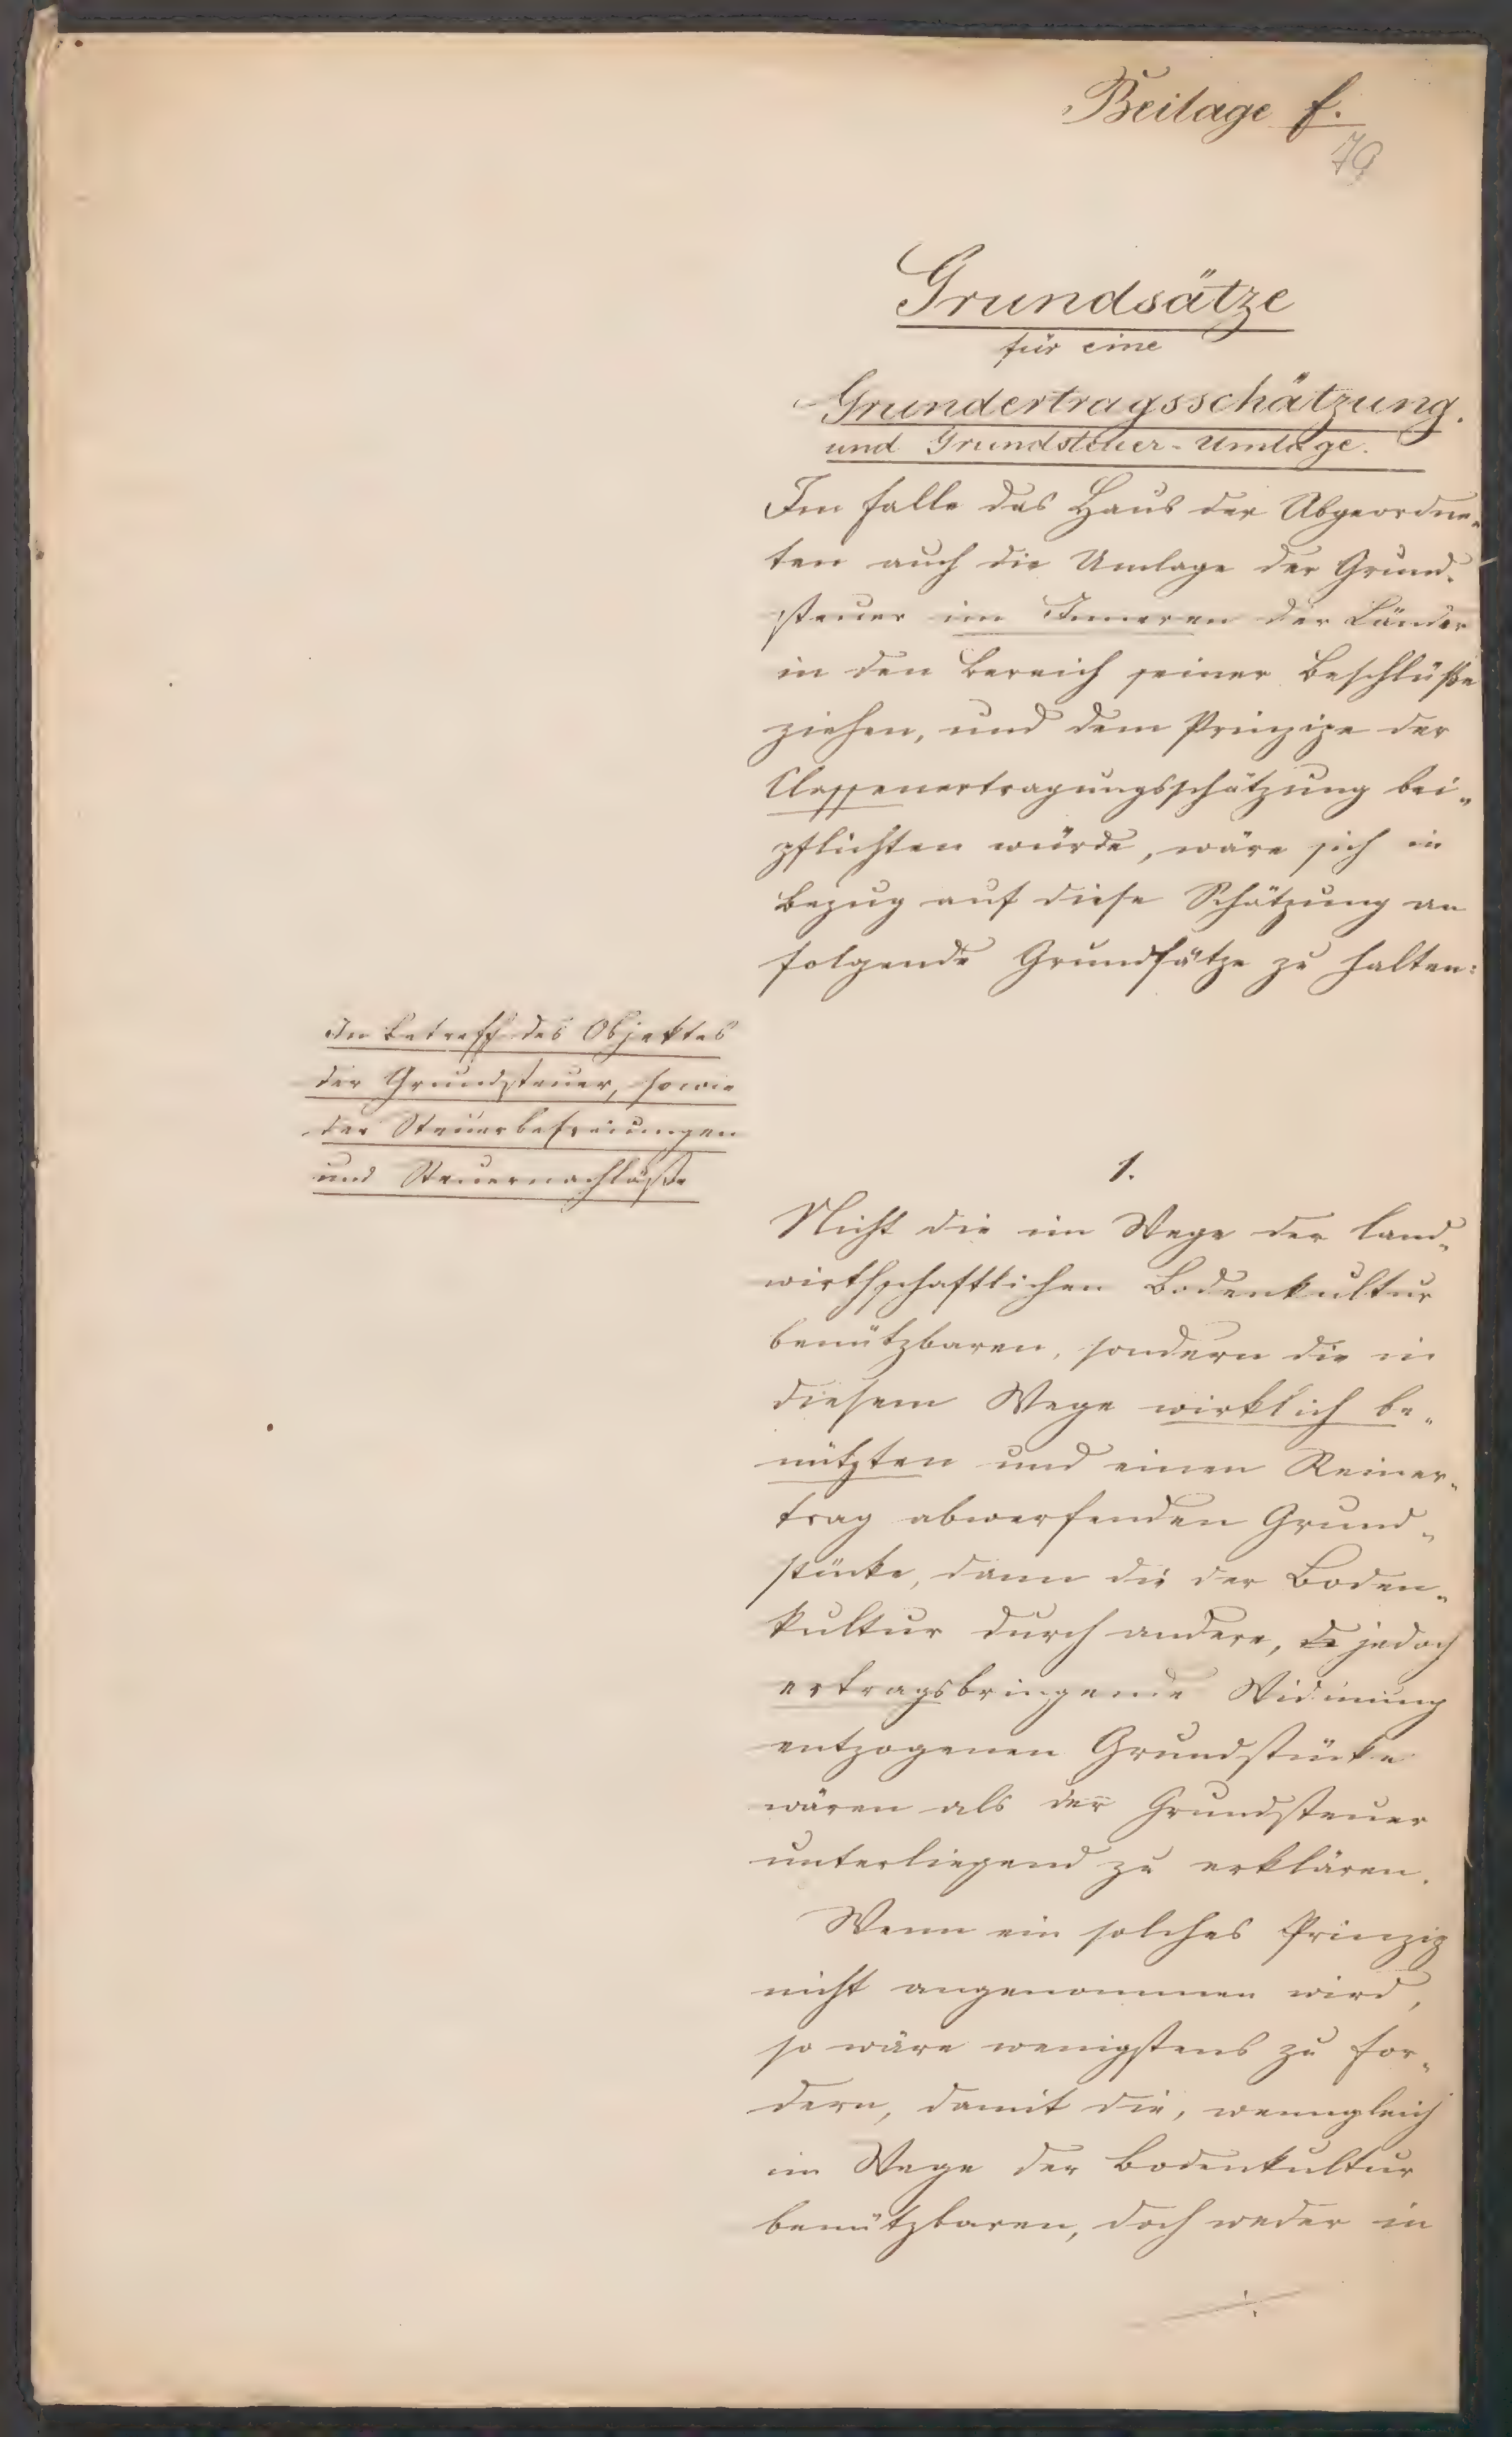 Beilage f.
70
Grundsätze
für eine
Grundertragsschätzung.
und Grundsteuer-Umlage.
Im Falle das Haus der Abgeordne„
ten auch die Umlage der Grund„
steuer im Inneren der Länder
in den Bereich seiner Beschlüße
ziehen, und dem Prinzipe der
Classenertragungsschätzung bei„
pflichten würde, wäre sich in
Bezug auf diese Schätzung an
folgende Grundsätze zu halten:
In Betreff des Objektes
der Grundsteuer, sowie
der Steuerbefreiungen
und Steuernachläße
1.
Nicht die im Wege der land„
wirthschaftlichen Bodenkultur
benützbaren, sondern die in
diesem Wege wirklich be„
nützten und einen Reiner„
trag abwerfenden Grund„
stücke, dann die der Boden„
kultur durch andere, de jedoch
ertragsbringende Widmung
entzogenen Grundstücke
wären als der Grundsteuer
unterliegend zu erklären.
Wenn ein solches Prinzip
nicht angenommen wird,
so wäre wenigstens zu for„
dern, damit die, wenngleich
im Wege der Bodenkultur
benützbaren, doch weder in
./.